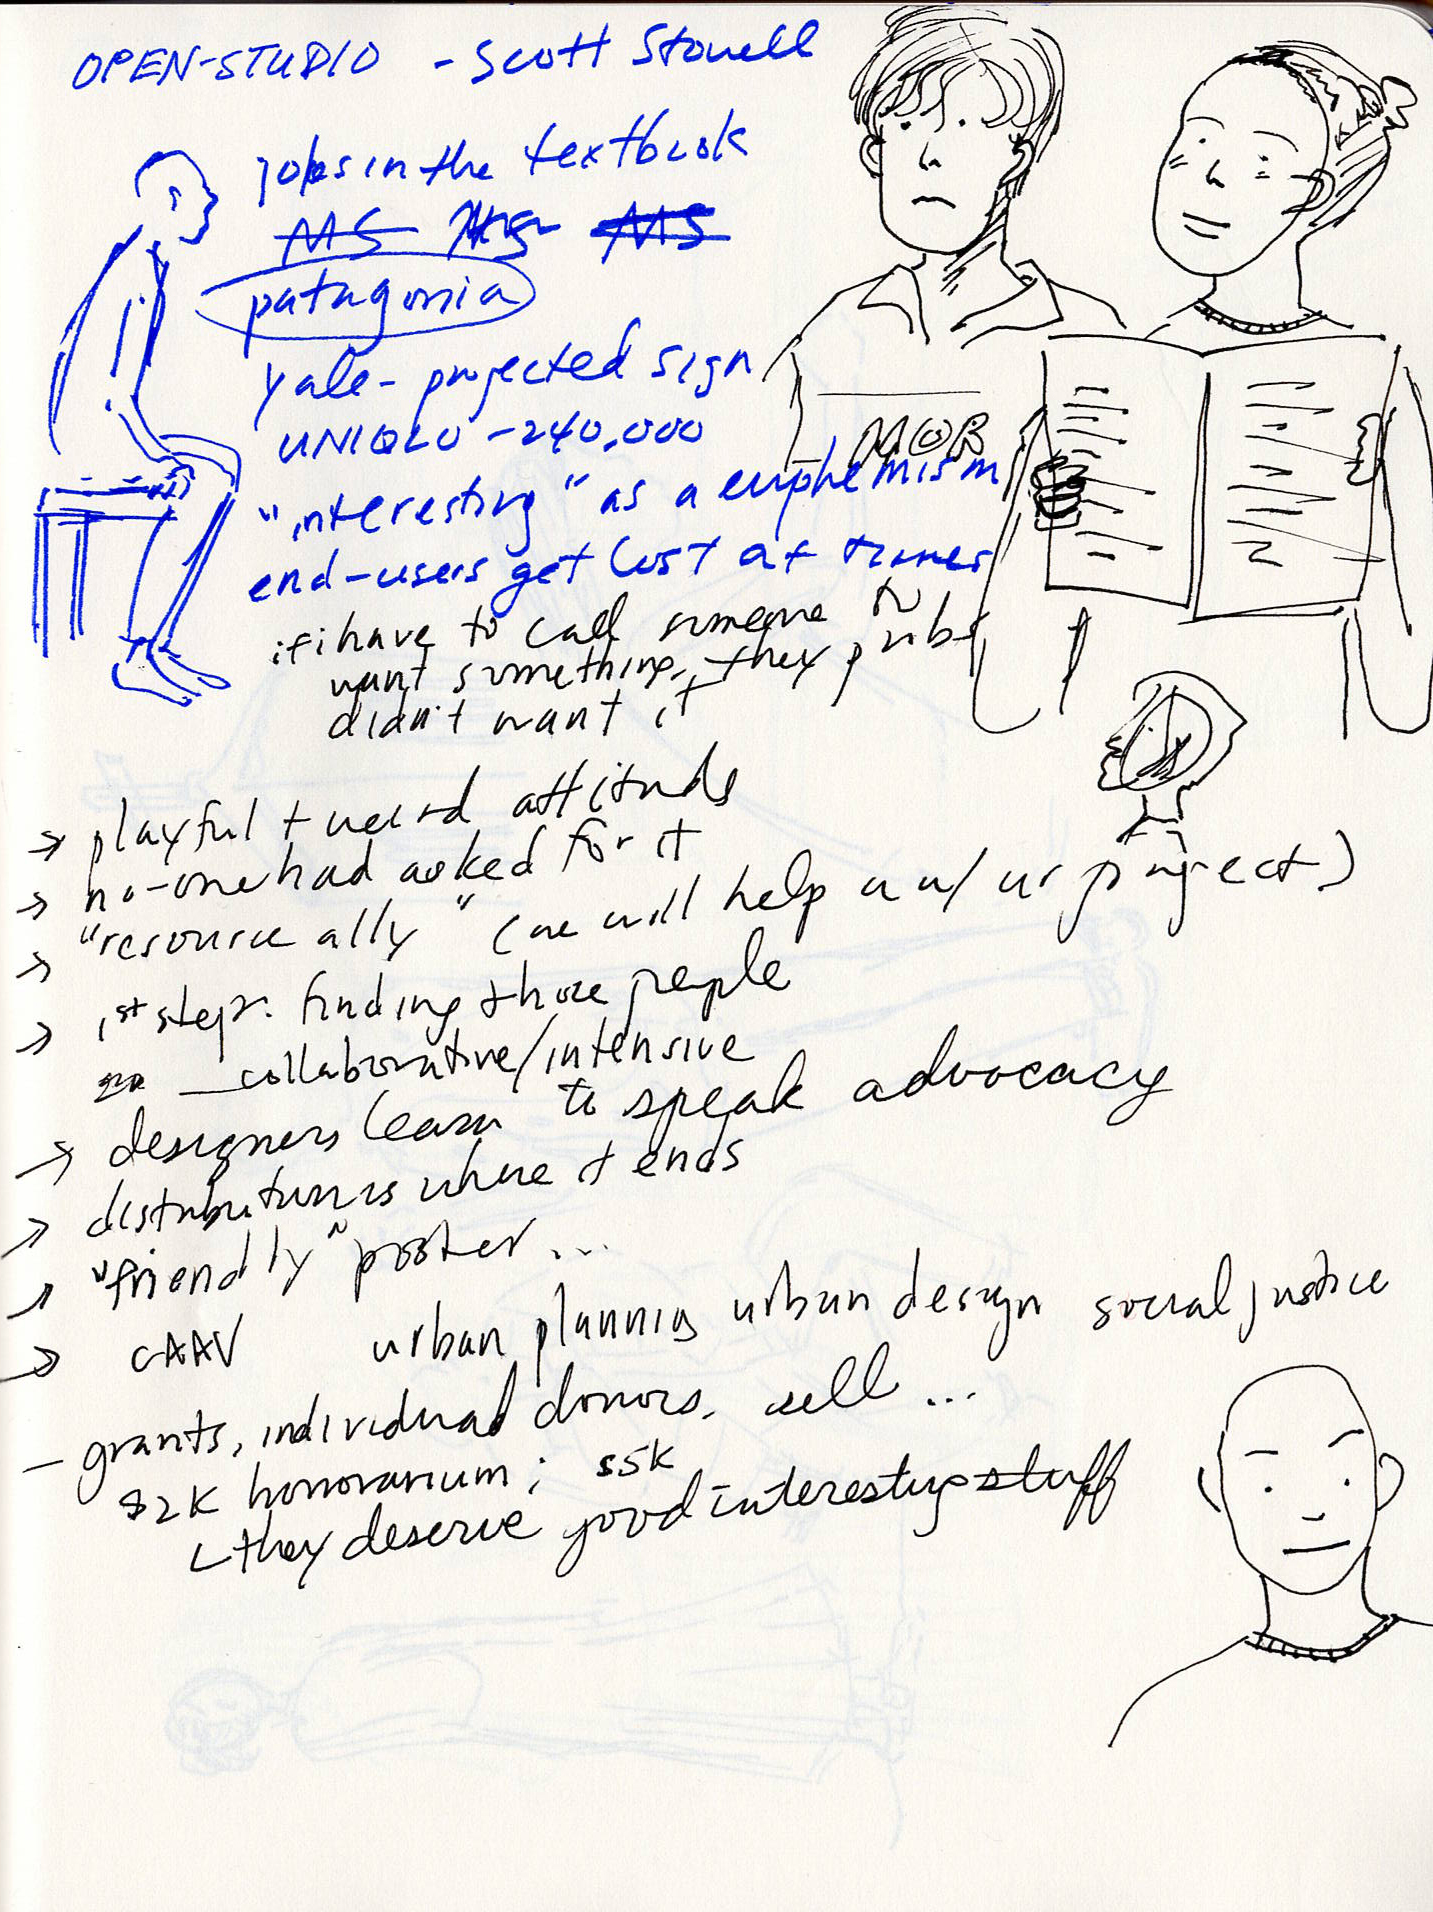 OPEN-STUDIO - Scott Stowell
jobs in the textbook
MS MS MS
patagonia
yale - projected sign
UNIQLO - 240,000
MOR
"interesting" as a euphemism
end-users get lost at times
if i have to call someone to
want something, they probs
didn't want it
→ playful + weird attitude
→ no-one had asked for it
→ "resource ally" (we will help u w/ ur project)
→ 1st step: finding those people
collaborative/intensive
→ designers learn to speak advocacy
→ distribution is where it ends
→ "friendly" poster...
→ CAAV urban planning urban design social justice
- grants, individual donors, sell...
$2K honorarium; $5K
they deserve good interesting stuff